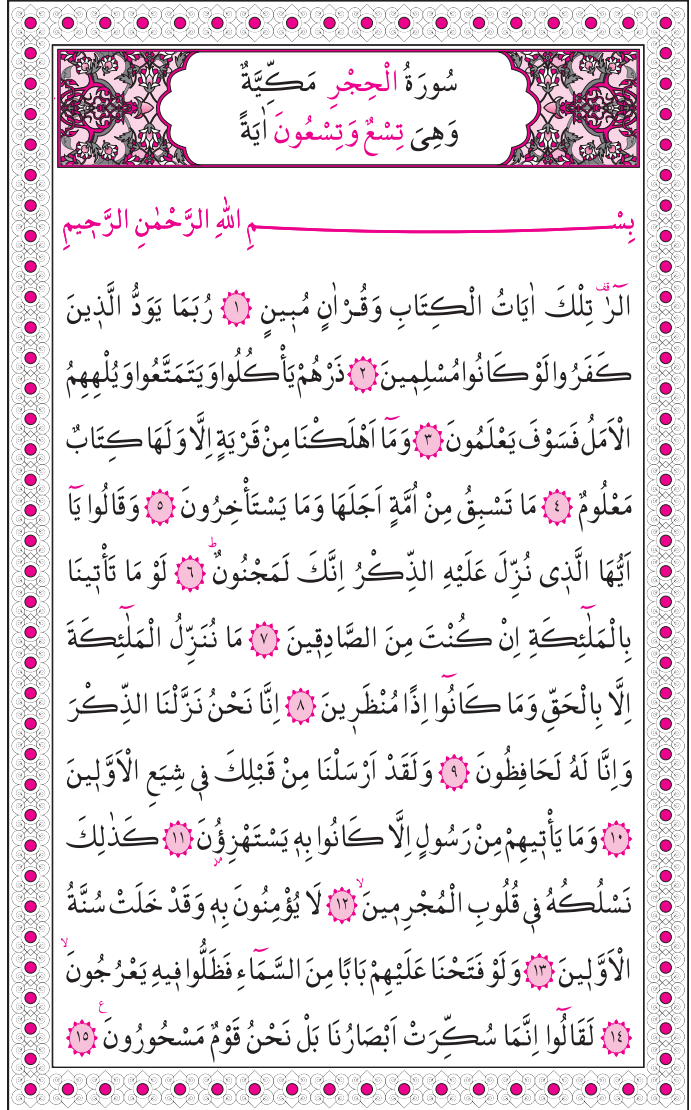 سُورَةُ الْحِجْرِ مَكِّيَّةٌ
وَهِىَ تِسْعٌ وَتِسْعُونَ اٰيَةً
بِسْمِ اللّٰهِ الرَّحْمٰنِ الرَّحِيمِ
الٓرٰ ࣞقف تِلْكَ اٰيَاتُ الْكِتَابِ وَقُرْاٰنٍ مُبِينٍ ﴿١﴾ رُبَمَا يَوَدُّ الَّذِينَ
كَفَرُوا لَوْ كَانُوا مُسْلِمِينَ ﴿٢﴾ ذَرْهُمْ يَأْكُلُوا وَيَتَمَتَّعُوا وَيُلْهِهِمُ
الْاَمَلُ فَسَوْفَ يَعْلَمُونَ ﴿٣﴾ وَمَٓا اَهْلَكْنَا مِنْ قَرْيَةٍ اِلَّا وَلَهَا كِتَابٌ
مَعْلُومٌ ﴿٤﴾ مَا تَسْبِقُ مِنْ اُمَّةٍ اَجَلَهَا وَمَا يَسْتَأْخِرُونَ ﴿٥﴾ وَقَالُوا يَٓا
اَيُّهَا الَّذِى نُزِّلَ عَلَيْهِ الذِّكْرُ اِنَّكَ لَمَجْنُونٌ ط ﴿٦﴾ لَوْ مَا تَأْتِينَا
بِالْمَلٰٓئِكَةِ اِنْ كُنْتَ مِنَ الصَّادِقِينَ ﴿٧﴾ مَا نُنَزِّلُ الْمَلٰٓئِكَةَ
اِلَّا بِالْحَقِّ وَمَا كَانُٓوا اِذًا مُنْظَرِينَ ﴿٨﴾ اِنَّا نَحْنُ نَزَّلْنَا الذِّكْرَ
وَاِنَّا لَهُ لَحَافِظُونَ ﴿٩﴾ وَلَقَدْ اَرْسَلْنَا مِنْ قَبْلِكَ فِى شِيَعِ الْاَوَّلِينَ
﴿١٠﴾ وَمَا يَأْتِيهِمْ مِنْ رَسُولٍ اِلَّا كَانُوا بِهِ يَسْتَهْزِؤُنَ ﴿١١﴾ كَذٰلِكَ
نَسْلُكُهُ فِى قُلُوبِ الْمُجْرِمِينَ لا ﴿١٢﴾ لَا يُؤْمِنُونَ بِهِ وَقَدْ خَلَتْ سُنَّةُ
الْاَوَّلِينَ ﴿١٣﴾ وَلَوْ فَتَحْنَا عَلَيْهِمْ بَابًا مِنَ السَّمَٓاءِ فَظَلُّوا فِيهِ يَعْرُجُونَ لا
﴿١٤﴾ لَقَالُٓوا اِنَّمَا سُكِّرَتْ اَبْصَارُنَا بَلْ نَحْنُ قَوْمٌ مَسْحُورُونَ ع ﴿١٥﴾